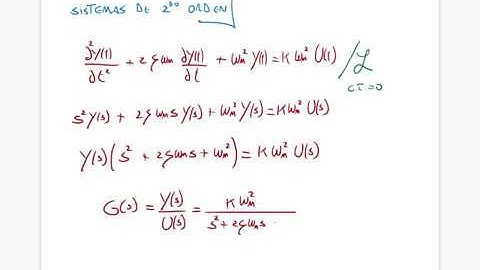 SISTEMAS DE 2do ORDEN
∂²Y(t)/∂t² + 2ζωn ∂Y(t)/∂t + ωn² Y(t) = K ωn² U(t) / ℒ
CI=0
s²Y(s) + 2ζωn s Y(s) + ωn² Y(s) = K ωn² U(s)
Y(s) (s² + 2ζωn s + ωn²) = K ωn² U(s)
G(s) = Y(s)/U(s) = K ωn² / s² + 2ζωn s